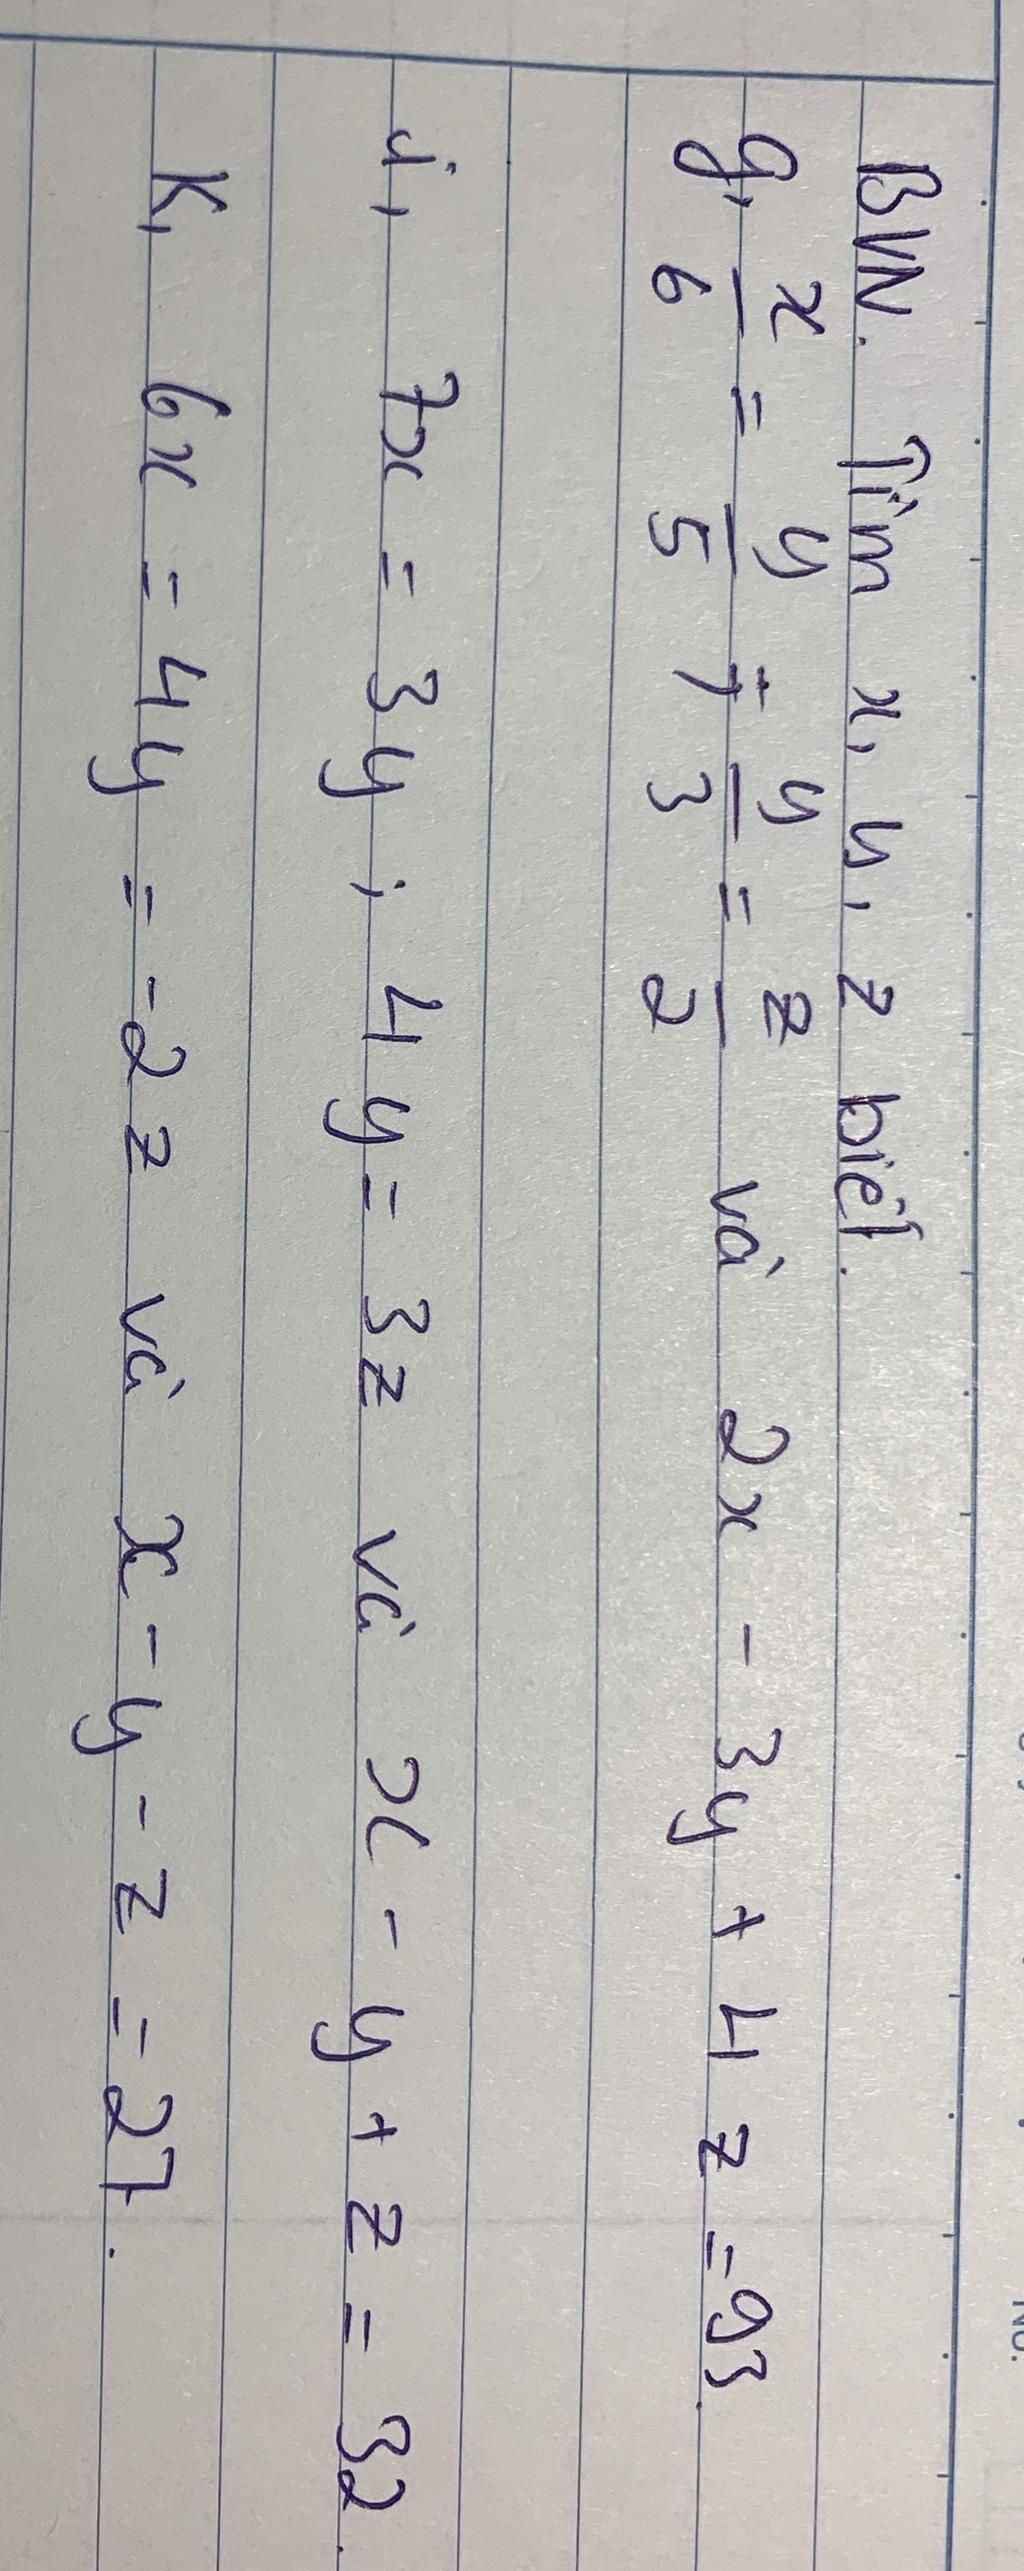 BVN. Tìm x, y, z biết.
g, x/6 = y/5 ; y/3 = z/2 và 2x - 3y + 4z = 93.
i, 7x = 3y ; 4y = 3z và x - y + z = 32.
K, 6x = 4y = -2z và x - y - z = 27.
No.